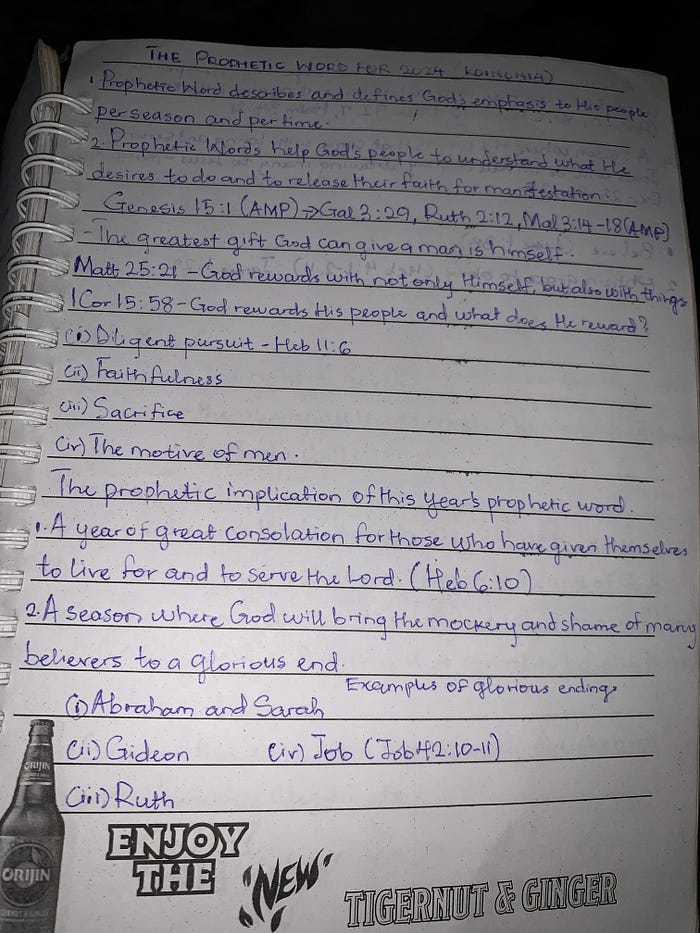 THE PROPHETIC WORD FOR 2024 (KOINONIA)
1. Prophetic Word describes and defines God's emphasis to His people
per season and per time.
2. Prophetic Words help God's people to understand what He
desires to do and to release their faith for manifestation.
Genesis 15:1 (AMP) → Gal 3:29, Ruth 2:12, Mal 3:14-18 (AMP)
- The greatest gift God can give a man is himself.
Matt 25:21 - God rewards with not only Himself, but also with things
1 Cor 15:58 - God rewards His people and what does He reward?
(i) Diligent pursuit - Heb 11:6
(ii) Faithfulness
(iii) Sacrifice
(iv) The motive of men.
The prophetic implication of this year's prophetic word.
1. A year of great consolation for those who have given themselves
to live for and to serve the Lord. (Heb 6:10)
2. A season where God will bring the mockery and shame of many
believers to a glorious end.
Examples of glorious endings
(i) Abraham and Sarah
(ii) Gideon (iv) Job (Job 42:10-11)
(iii) Ruth
ORIJIN
ORIJIN
ENJOY
THE
"NEW"
TIGERNUT & GINGER